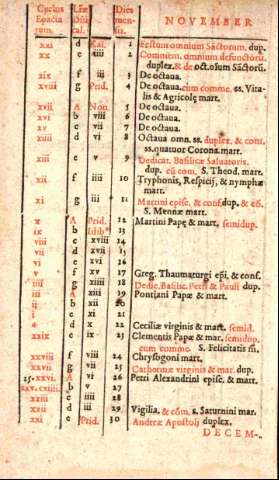 Cyclus Epactarum. Lræ Dñical. Dies mensis. NOVEMBER
xxi d Kal. 1 Festum omnium Sãctorum. dup.
xx e iiii 2 Commem. omnium defunctorũ. duplex. & de oct. õium Sãctorũ.
xix f iii 3 De octaua.
xviii g Prid. 4 De octaua. cum comme. ss. Vitalis & Agricolę mart.
xvii A Non. 5 De octaua.
xvi b viii 6 De octaua.
xv c vii 7 De octaua.
xiiii d vi 8 Octaua omn. ss. duplex. & com. ss. quatuor Corona. mart.
xiii e v 9 Dedicat. Basilicæ Saluatoris. dup. cũ com. S. Theod. mart.
xii f iiii 10 Tryphonis, Respicij, & nymphæ mart.
xi g iii 11 Martini episc. & conf. dup. & cõ. S. Mennæ mart.
x A Prid. 12 Martini Papę & mart. semidup.
ix b Idib 13
viii c xviii 14
vii d xvii 15
vi e xvi 16
v f xv 17 Greg. Thaumaturgi epi, & conf.
iiii g xiiii 18 Dedic. Basilic. Petri & Pauli dup.
iii A xiii 19 Pontiani Papæ & mart.
ii b xii 20
i c xi 21
* d x 22 Ceciliæ virginis & mart. semid.
xxix e ix 23 Clementis Papæ & mar. semidup. cum comme. S. Felicitatis m.
xxviii f viii 24 Chrysogoni mart.
xxvii g vii 25 Catharinæ virginis & mar. dup.
25. xxvi. A vi 26 Petri Alexandrini episc. & mart.
xxv. xxiiii. b v 27
xxiii c iiii 28
xxii d iii 29 Vigilia, & cõm. s. Saturnini mar.
xxi e Prid. 30 Andreæ Apostoli duplex.
DECEM-